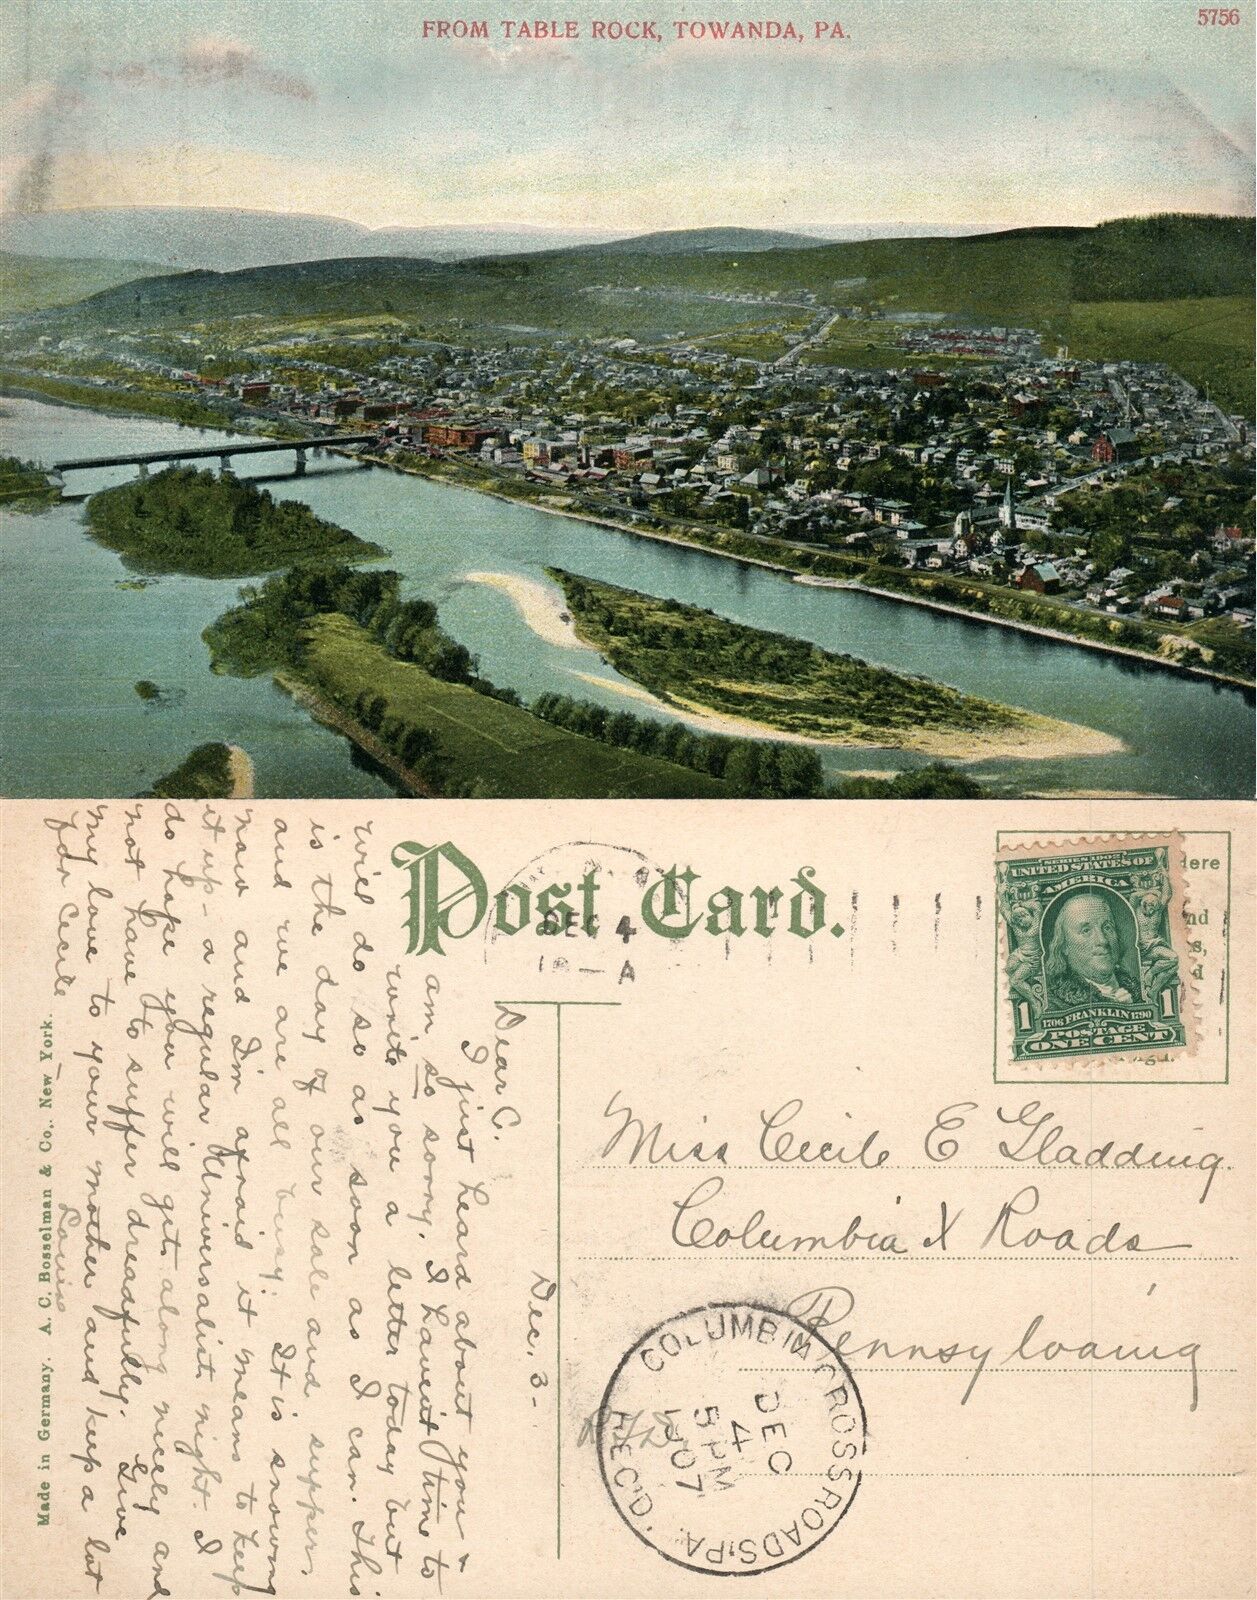 FROM TABLE ROCK, TOWANDA, PA.
5756
Post Card.
DEC 4
A
Here
nd
SERIES 1902
UNITED STATES OF
AMERICA
1 1
1706 FRANKLIN 1790
POSTAGE
ONE CENT
Dec, 3-
Dear C.
I just heard about you &
am so sorry. I haven't time to
write you a letter today but
will do so as soon as I can. This
is the day of our sale and supper
and we are all busy. It is snowing
now and I'm afraid it means to keep
it up - a regular Universalist night. I
do hope you will get along nicely and
not have to suffer dreadfully. Give
my love to your mother and keep a lot
for Cecile _ Louise
Miss Cecile E Gladding.
Columbia X Roads
Pennsylvania
R.F.D.
COLUMBIA CROSS ROADS, PA.
DEC
4
5 PM
1907
REC'D.
Made in Germany. A. C. Bosselman & Co., New York.